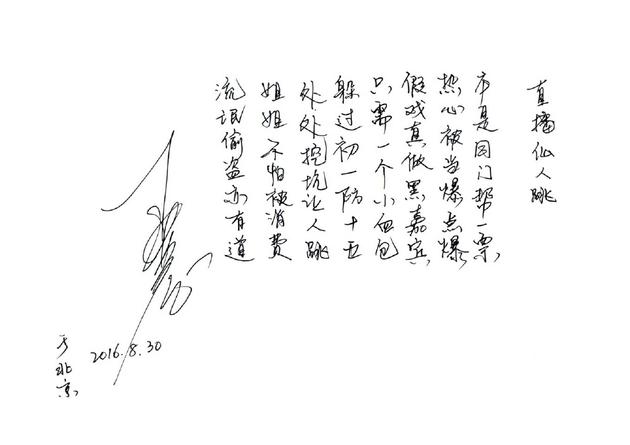 直播仙人跳
本是同门帮一票,
热心被当爆点爆,
假戏真做黑嘉宾,
只需一个小血包
躲过初一防十五
处处挖坑让人跳
姐姐不怕被消费
流氓偷盗亦有道
2016.8.30
于北京